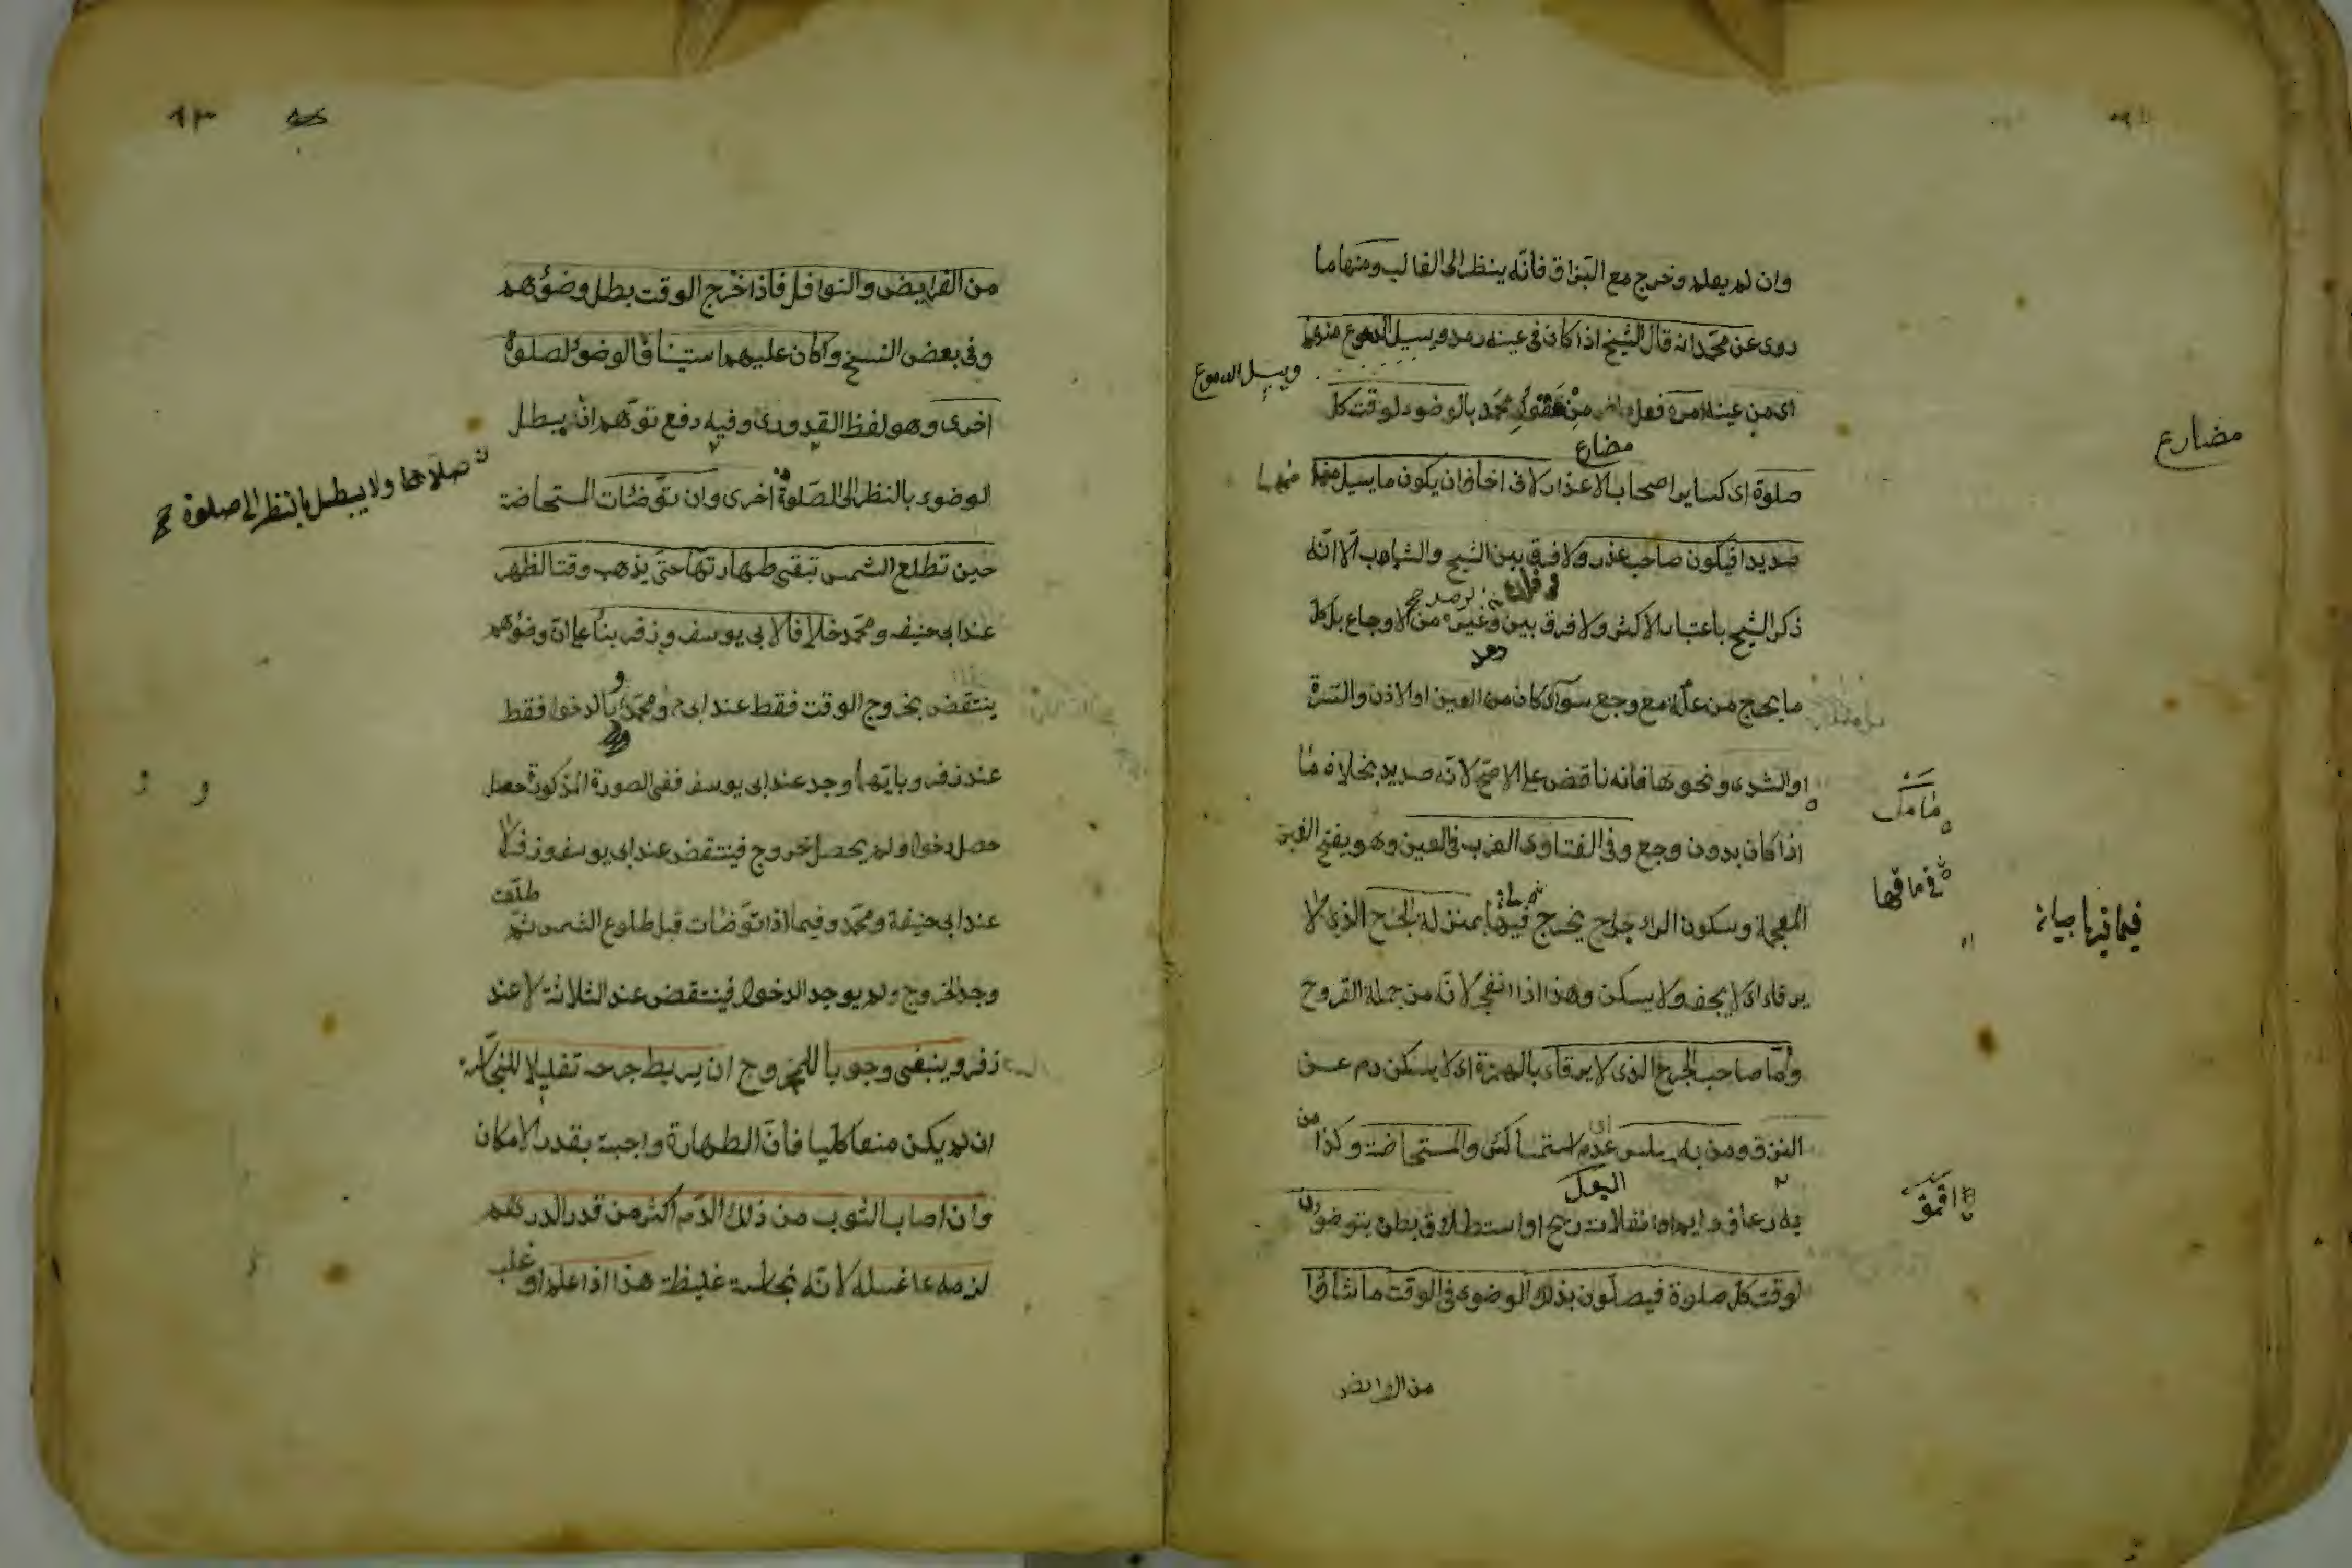 وان لم يعلم وخرج مع البزاق فانه ينظر الى الغالب ومنها ما
روى عن محمد انه قال الشيخ اذا كان فى عينه رمد ويسيل الدموع منها
ويسيل الدموع
اى من عينه امره بالوضوء لوقت كل
مضارع
صلوة اى كساير اصحاب الاعذار لانى اخاف ان يكون ما يسيل منها
منها
صديدا فيكون صاحب عذر ولا فرق بين الشيخ والشاب الا انه
ذكر الشيخ باعتبار الاكثر ولا فرق بين وغيره من الاوجاع بل كل
رمد صح
ما يخرج من علة مع وجع سواء كان من العين او الاذن والسرة
او الثدى ونحوها فانه ناقض على الاصح لانه صديد بخلاف ما
اذا كان بدون وجع وفى الفتاوى الغرب فى العين وهو بفتح الغين
المعجمة وسكون الراء جراح يخرج فيها بمنزلة الجرح الذى لا
يرقاء اى لا يجف ولا يسكن وهذا اذا انفجر لانه من جملة القروح
واما صاحب الجرح الذى لا يرقاء بالهمزة اى لا يسكن دم عن
النزق ومن به سلس عدم استمساك والمستحاضة وكذا من
البول
به رعاف دايم او انفلات ريح او استطلاق بطن يتوضؤن
لوقت كل صلوة فيصلون بذلك الوضوء فى الوقت ما شاؤا
من الفرايض
مضارع
٩٣
من الفرايض والنوافل فاذا خرج الوقت بطل وضؤهم
وفى بعض النسخ وكان عليهم استيناف الوضوء لصلوة
اخرى وهو لفظ القدورى وفيه دفع توهم انه يبطل
الوضوء بالنظر الى الصلوة اخرى وان توضئات المستحاضة
صلاحها ولا يبطل بالنظر الى صلوة صح
حين تطلع الشمس تبقى طهارتها حتى يذهب وقت الظهر
عند ابى حنيفه ومحمد خلافا لابى يوسف وزفر بناء على ان وضؤهم
ينتقض بخروج الوقت فقط عند ابى ح ومحمد و بالدخول فقط
عند زفر وبايهما وجد عند ابى يوسف ففى الصورة المذكورة حصل
حصل دخول ولم يحصل خروج فينتقض عند ابى يوسف وزفر لا
عند ابى حنيفة ومحمد وفيما اذا توضات قبل طلوع الشمس ثم
طلعت
وجد الخروج ولم يوجد الدخول فينتقض عند الثلاثة لا عند
زفر وينبغى وجوبا للمجروح ان يربط جرحه تقليلا للنجاسة
ان لم يكن منعا كليا فان الطهارة واجبة بقدر الامكان
وان اصاب الثوب من ذلك الدم اكثر من قدر الدرهم
لزمه غسله لانه نجاسة غليظة هذا اذا علم او غلب